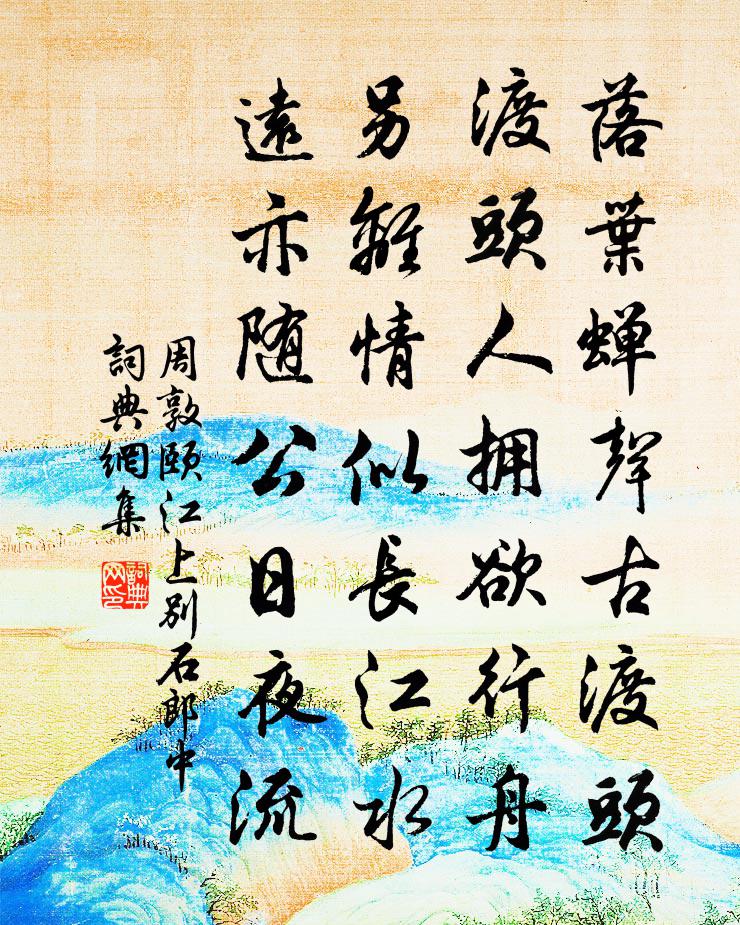 落葉蟬聲古渡頭
渡頭人拥欲行舟
另離情似長江水
遠亦随公日夜流
周敦頤江上别石郎中
詞典網集
詞典网印